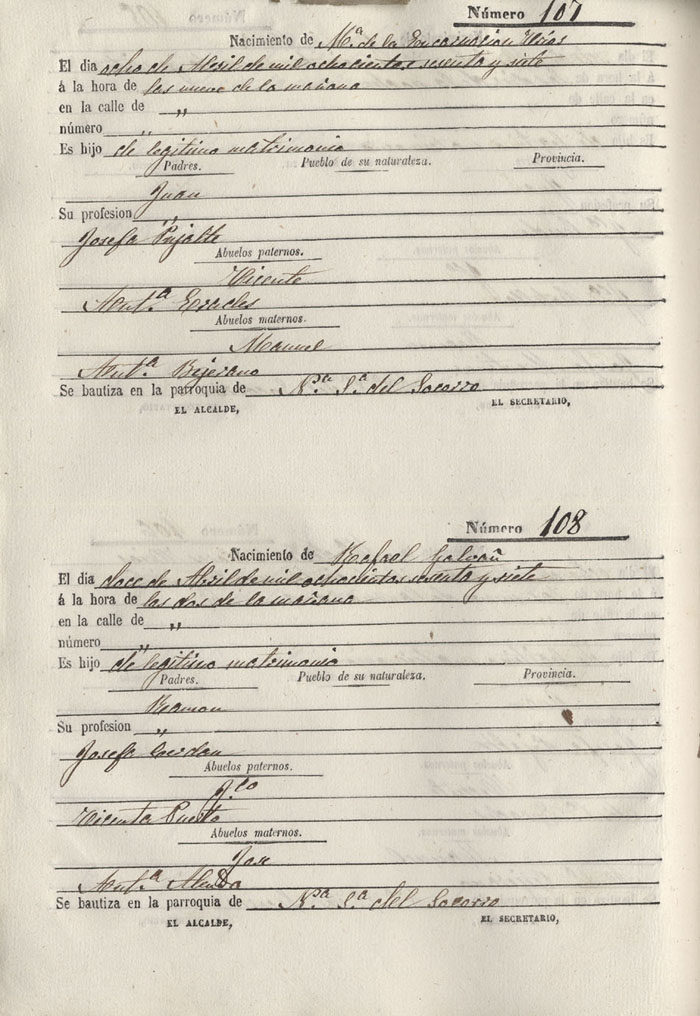 Número 107
Nacimiento de Mª de la Encarnacion Miras
El dia ocho de Abril de mil ochocientos sesenta y siete
á la hora de las nueve de la mañana
en la calle de „
número „
Es hijo de legitimo matrimonio
Padres. Pueblo de su naturaleza. Provincia.
Juan
Su profesion „
Josefa Pujalte
Abuelos paternos.
Vicente
Antª
Abuelos maternos.
Manuel
Antª Bejerano
Se bautiza en la parroquia de Nª Sª del Socorro
EL ALCALDE, EL SECRETARIO,
Número 108
Nacimiento de Rafael Galvañ
El dia doce de Abril de mil ochocientos sesenta y siete
á la hora de las dos de la mañana
en la calle de „
número „
Es hijo de legitimo matrimonio
Padres. Pueblo de su naturaleza. Provincia.
Ramon
Su profesion „
Josefa Cerdan
Abuelos paternos.
Fco
Vicenta Puerto
Abuelos maternos.
Jose
Antª
Se bautiza en la parroquia de Nª Sª del Socorro
EL ALCALDE, EL SECRETARIO,